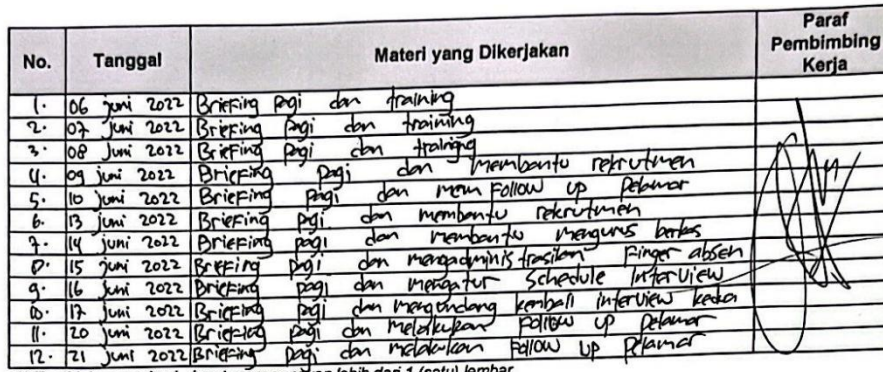 No. Tanggal Materi yang Dikerjakan Paraf Pembimbing Kerja
1. 06 juni 2022 Briefing pagi dan training
2. 07 juni 2022 Briefing pagi dan training
3. 08 juni 2022 Briefing pagi dan training
4. 09 juni 2022 Briefing pagi dan membantu rekrutmen
5. 10 juni 2022 Briefing pagi dan mem Follow up pelamar
6. 13 juni 2022 Briefing pagi dan membantu rekrutmen
7. 14 juni 2022 Briefing pagi dan membantu mengurus berkas
8. 15 juni 2022 Briefing pagi dan mengadministrasikan Finger absen
9. 16 juni 2022 Briefing pagi dan mengatur Schedule Interview
10. 17 juni 2022 Briefing pagi dan mengundang kembali interview kedua
11. 20 juni 2022 Briefing pagi dan melakukan Follow up pelamar
12. 21 juni 2022 Briefing pagi dan melakukan Follow up pelamar
lebih dari 1 (satu) lembar